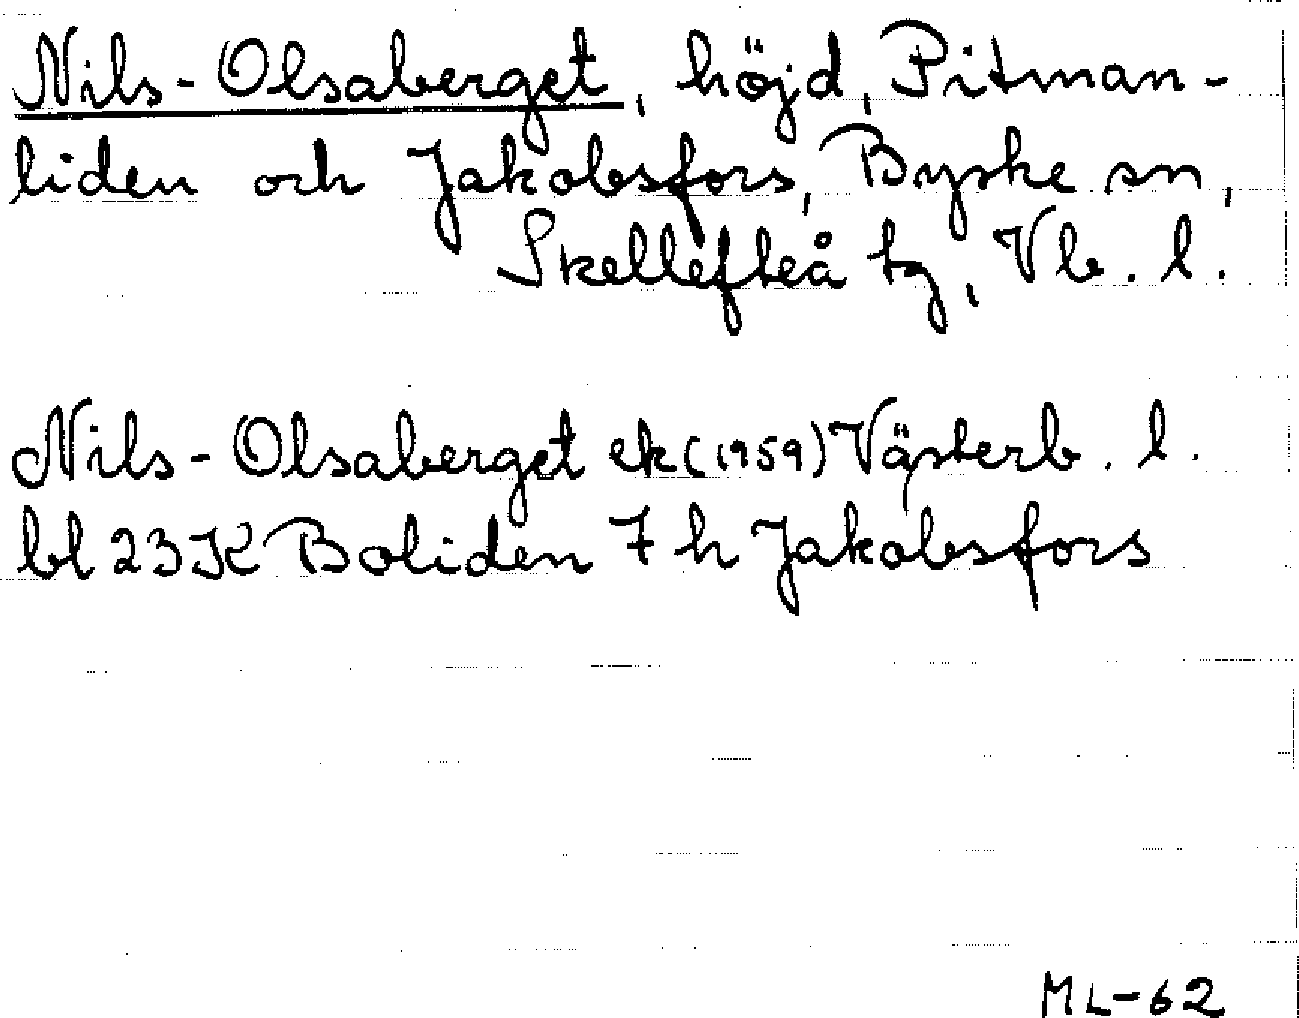 Nils-Olsaberget, höjd, Pitman-
liden och Jakobsfors, Byske sn,
Skellefteå tg, Vb. l.
Nils-Olsaberget ek (1959) Västerb. l.
bl 23K Boliden 7 h Jakobsfors
ML-62